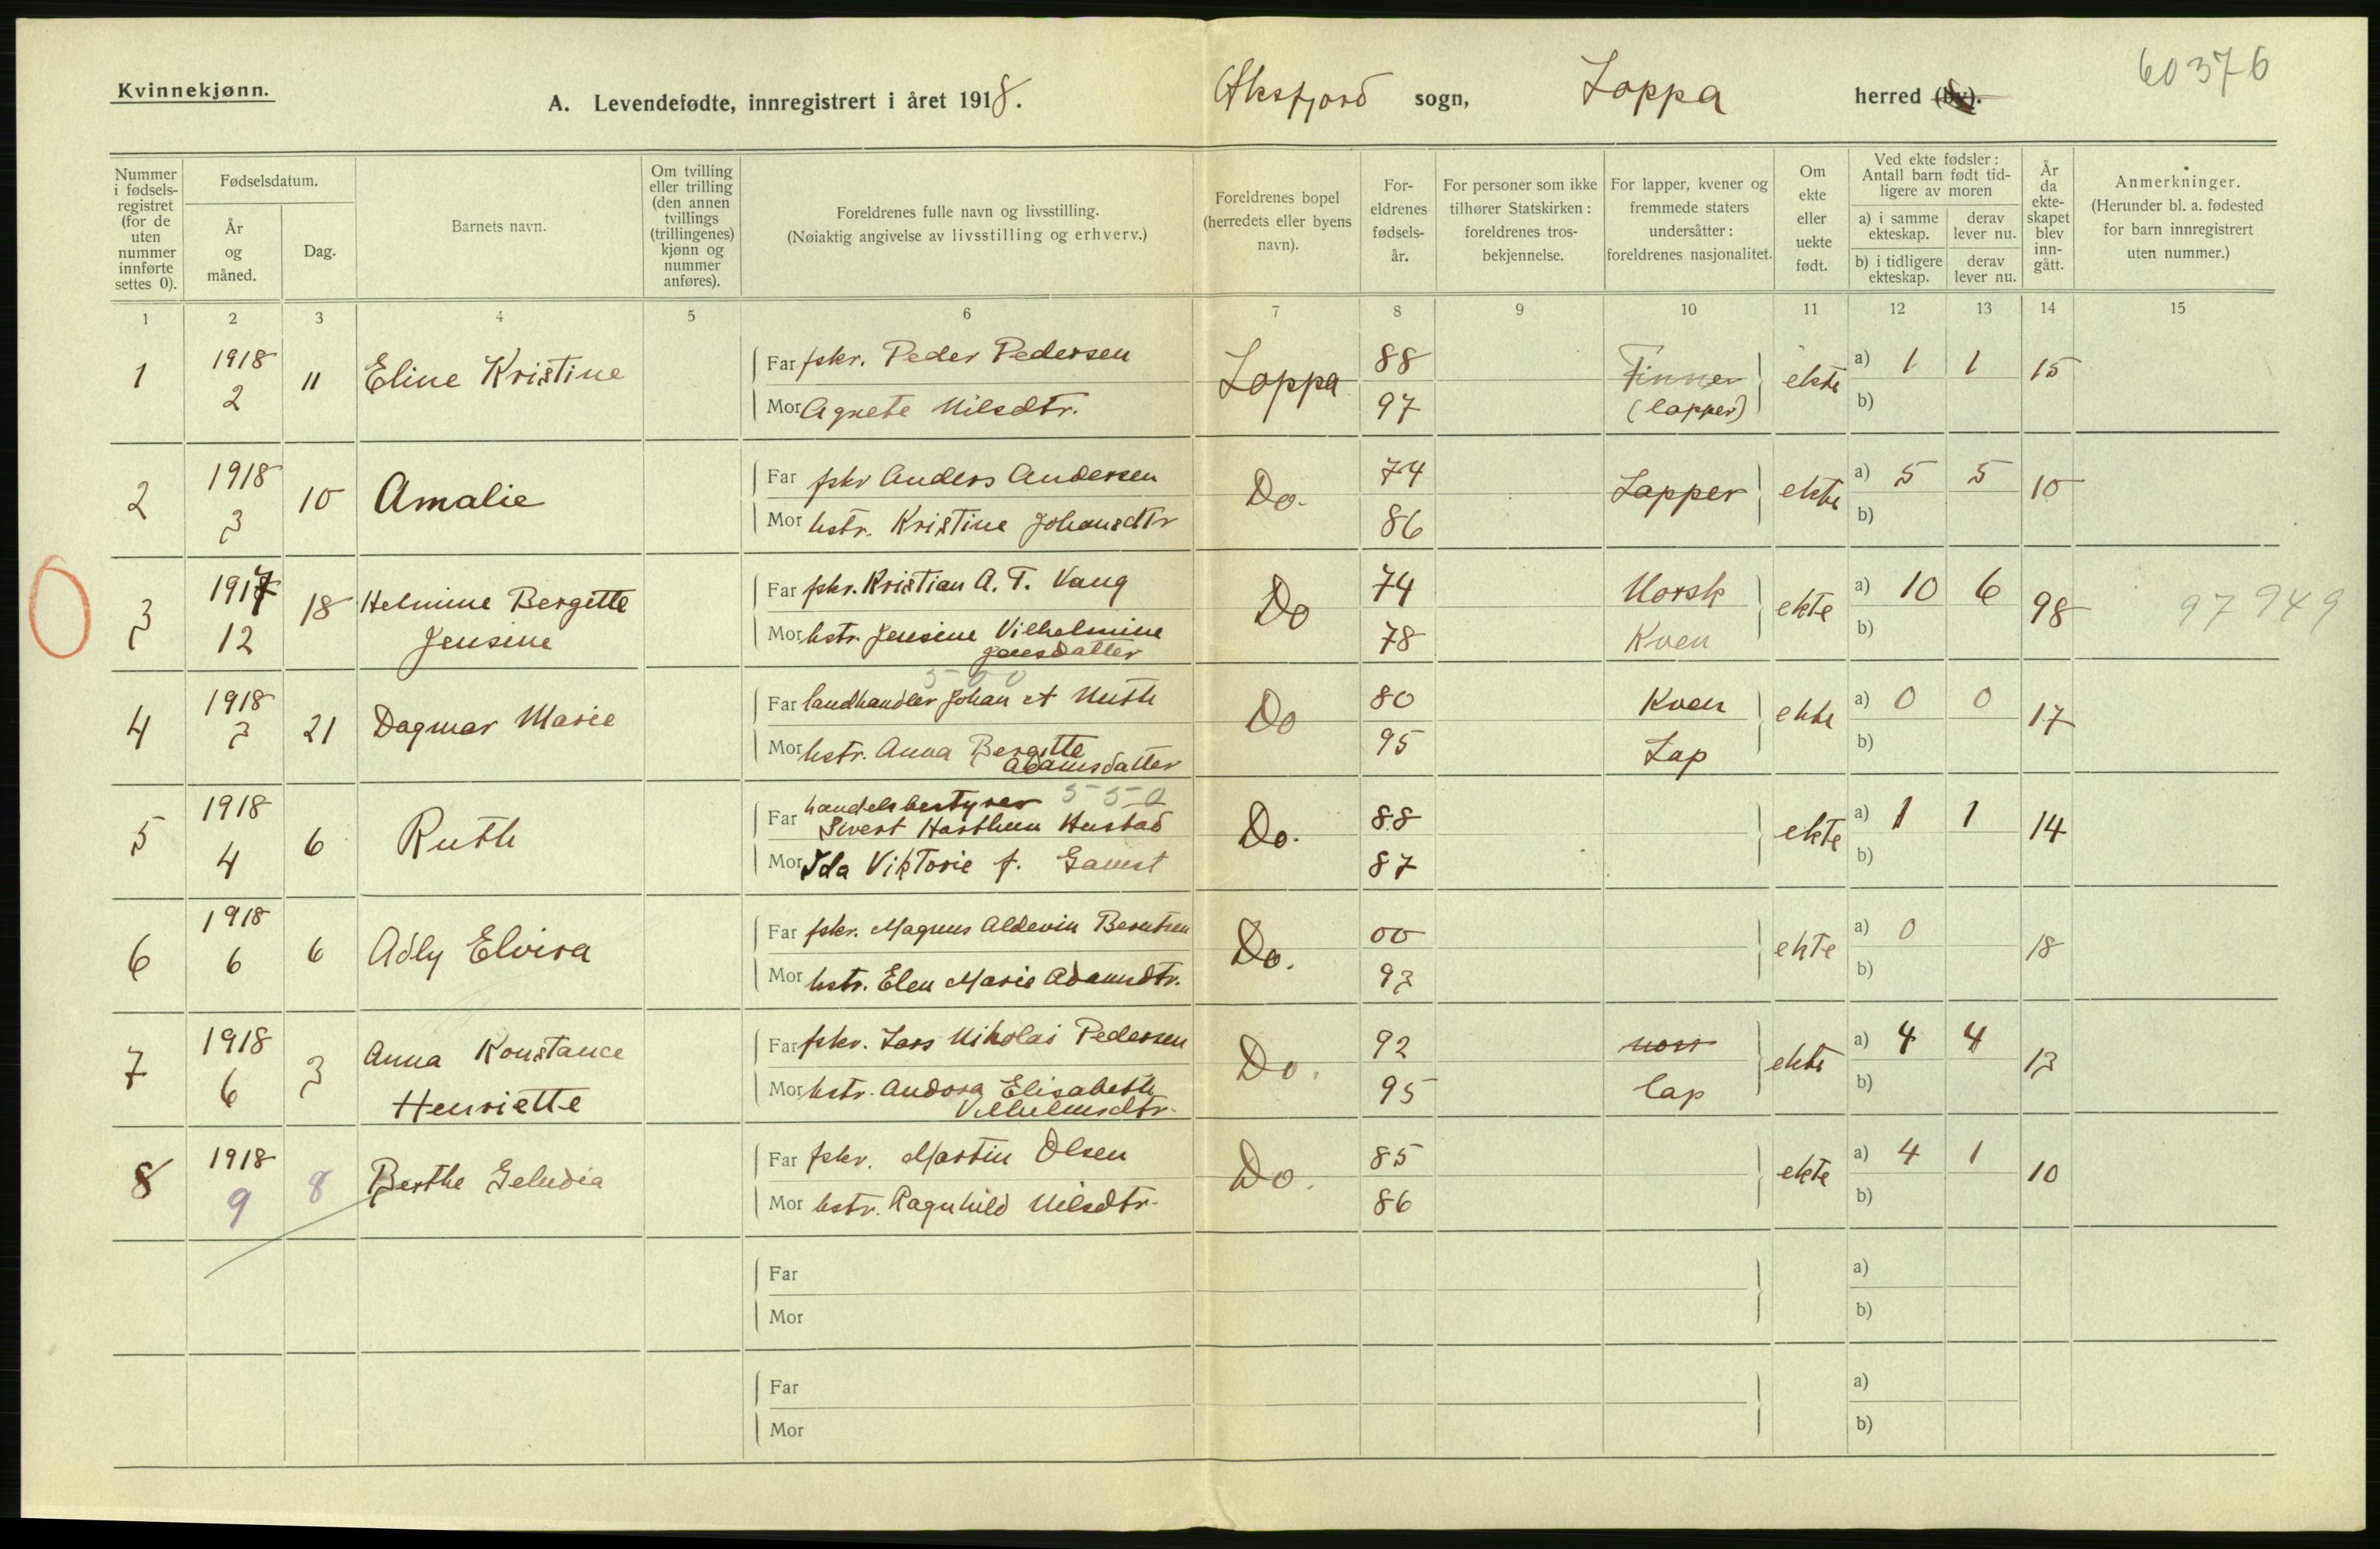 Kvinnekjønn.
A. Levendefødte, innregistrert i året 1918.
Øksfjord sogn, Loppa herred (by).
60376
Nummer i fødsels-registret (for de uten nummer innførte settes 0).
Fødselsdatum.
År og måned.
Dag.
Barnets navn.
Om tvilling eller trilling (den annen tvillings (trillingenes) kjønn og nummer anføres).
Foreldrenes fulle navn og livsstilling.
(Nøiaktig angivelse av livsstilling og erhverv.)
Foreldrenes bopel (herredets eller byens navn).
For-eldrenes fødsels-år.
For personer som ikke tilhører Statskirken: foreldrenes tros-bekjennelse.
For lapper, kvener og fremmede staters undersåtter: foreldrenes nasjonalitet.
Om ekte eller uekte født.
Ved ekte fødsler: Antall barn født tid-ligere av moren
a) i samme ekteskap.
derav lever nu.
b) i tidligere ekteskap.
derav lever nu.
År da ekte-skapet blev inn-gått.
Anmerkninger.
(Herunder bl. a. fødested for barn innregistrert uten nummer.)
1 2 3 4 5 6 7 8 9 10 11 12 13 14 15
1 1918 2 11 Eline Kristine
Far fskr. Peder Pedersen Loppa 88 Finner ekte a) 1 1 15
Mor Agnete Nilsdtr. 97 (lapper) b)
2 1918 3 10 Amalie
Far fskr Anders Andersen Do. 74 Lapper ekte a) 5 5 10
Mor hstr. Kristine Johansdtr 86 b)
3 1917 12 18 Helmine Bergitte Jensine
Far fskr. Kristian A. T. Vang Do 74 Norsk ekte a) 10 6 98 97949
Mor hstr. Jensine Vilhelmine Jensdatter 78 Kven b)
500
4 1918 3 21 Dagmar Marie
Far landhandler Johan A Muth Do 80 Kven ekte a) 0 0 17
Mor hstr. Anna Bergitte Adamsdatter 95 Lap b)
5 1918 4 6 Ruth
Far handelsbestyrer 550
Sivert Hasthun Hustad Do. 88 ekte a) 1 1 14
Mor Ida Viktorie f. Gamst 87 b)
6 1918 6 6 Adly Elvira
Far fskr. Magnus Aldevin Berntsen Do. 00 ekte a) 0 18
Mor hstr. Elen Marie Adamsdtr. 93 b)
7 1918 6 3 Anna Konstance Henriette
Far fskr. Lars Nikolai Pedersen Do. 92 norr ekte a) 4 4 13
Mor hstr. Andora Elisabeth Vilhelmsdtr. 95 lap b)
8 1918 9 8 Berthe Geludia
Far fskr. Martin Olsen Do. 85 ekte a) 4 1 10
Mor hstr. Ragnhild Nilsdtr. 86 b)
Far a)
Mor b)
Far a)
Mor b)